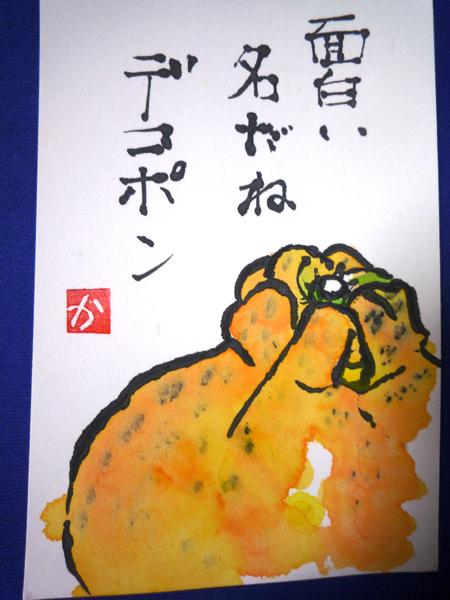 面白い
名だね
デコポン
か